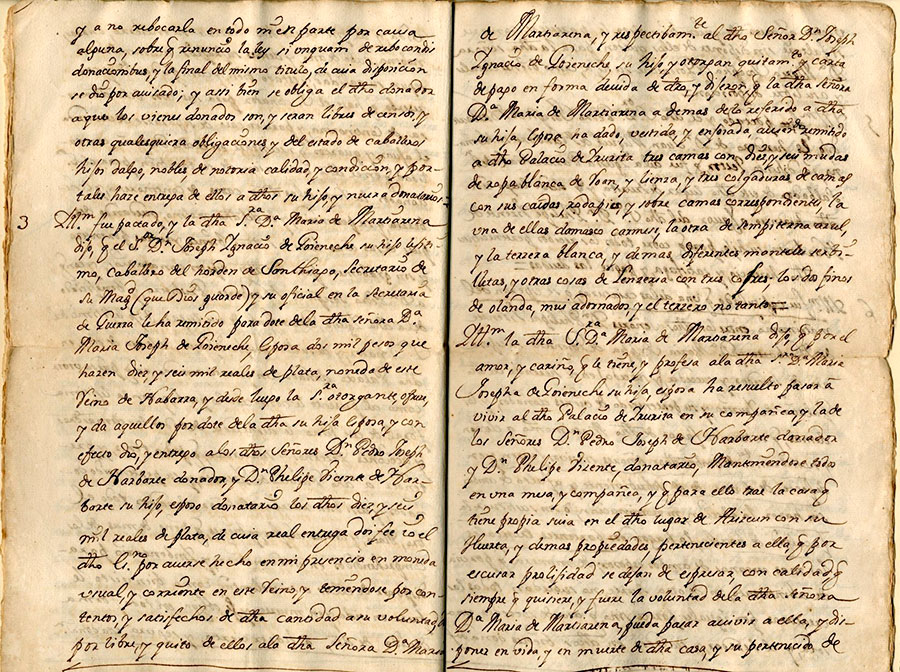 y a no rebocarla en todo ni en parte por causa
alguna, sobre q renunció la ley si unquam de rebocandis
donacionibus, y la final del mismo titulo, de cuia disposicion
se dio por avisado; y assi bien se obliga el dho donador
a que los vienes donados son, y seran libres de censos, y
otras qualesquiera obligaciones y del estado de cabaleros
hijos dalgo, nobles de notoria calidad, y condicion, y por
tales haze entrega de ellos a dhos su hijo, y nuera donatarios.
3 Ittm. fue pactado, y la dha S.ra D.a Maria de Martiarena
dijo, q el S.r D.n Joseph Ignacio de Goieneche su hijo legiti-
mo, cabalero del horden de Santhiago, Secretario de
su Mag.d (que Dios guarde) y su oficial en la Secretaria
de Guerra le ha remitido para dote de la dha señora D.a
Maria Joseph de Goieneche, Esposa dos mil pesos que
hazen diez, y seis mil reales de plata, moneda de este
Reino de Nabarra, y desde luego la S.ra otorgante, ofrece,
y da aquellos por dote de la dha su hija Esposa, y con
efecto dio, y entrego a los dhos Señores D.n Pedro Joseph
de Narbarte donador, y D.n Phelipe Vicente de Nar-
barte su hijo, esposo donatario los dhos diez, y seis
mil reales de plata, de cuia real entrega doi fee io el
dho Es.no por averse hecho en mi presencia en moneda
usual, y corriente en este Reino, y teniendose por con-
tentos, y satisfechos de dha cantidad a su voluntad
por libre, y quito de ellos a la dha Señora D.a Maria
de Martiarena, y respectibam.te al dho Señor D.n Joseph
Ignacio de Goieneche, su hijo y otorgan quitam.to y carta
de pago en forma devida de dro, y dijeron, q la dha señora
D.a Maria de Martiarena a demas de lo referido a dha
su hija, Esposa ha dado, vestido, y enjoiada, aviendo remitido
a dho Palacio de Irurita tres camas con diez, y seis mudas
de ropa blanca de Roan, y lienza, y tres colgaduras de camas
con sus caidas, rodapies, y sobre camas correspondientes, la
una de ellas damasco carmesi, la otra de sempiterna azul,
y la terzera blanca, y demas diferentes manteles serbi-
lletas, y otras cosas de lenzeria con tres cofres, los dos finos
de olanda, mui adornados, y el terzero no tanto
Ittm. la dha S.ra D.a Maria de Martiarena dijo, q por el
amor, y cariño, q le tiene, y profesa a la dha S.ra D.a Maria
Josepha de Goieneche su hija, esposa ha resuelto pasar a
vivir al dho Palacio de Irurita en su compañea, y la de
los Señores D.n Pedro Joseph de Narbarte donador
y D.n Phelipe Vizente, donatario, Manteniendose todos
en una mesa, y compañea, y q para ello trae la casa q
tiene propia suia en el dho lugar de Arizcun con su
Huerta, y demas propiedades pertenecientes a ella, q por
escusar prolijidad se dejan de espresar, con calidad q
siempre q quisiere, y fuere la voluntad de la dha Señora
D.a Maria de Martiarena, pueda pasar a vivir a ella, y dis-
poner en vida, y en muerte de dha casa, y su pertenecido, de